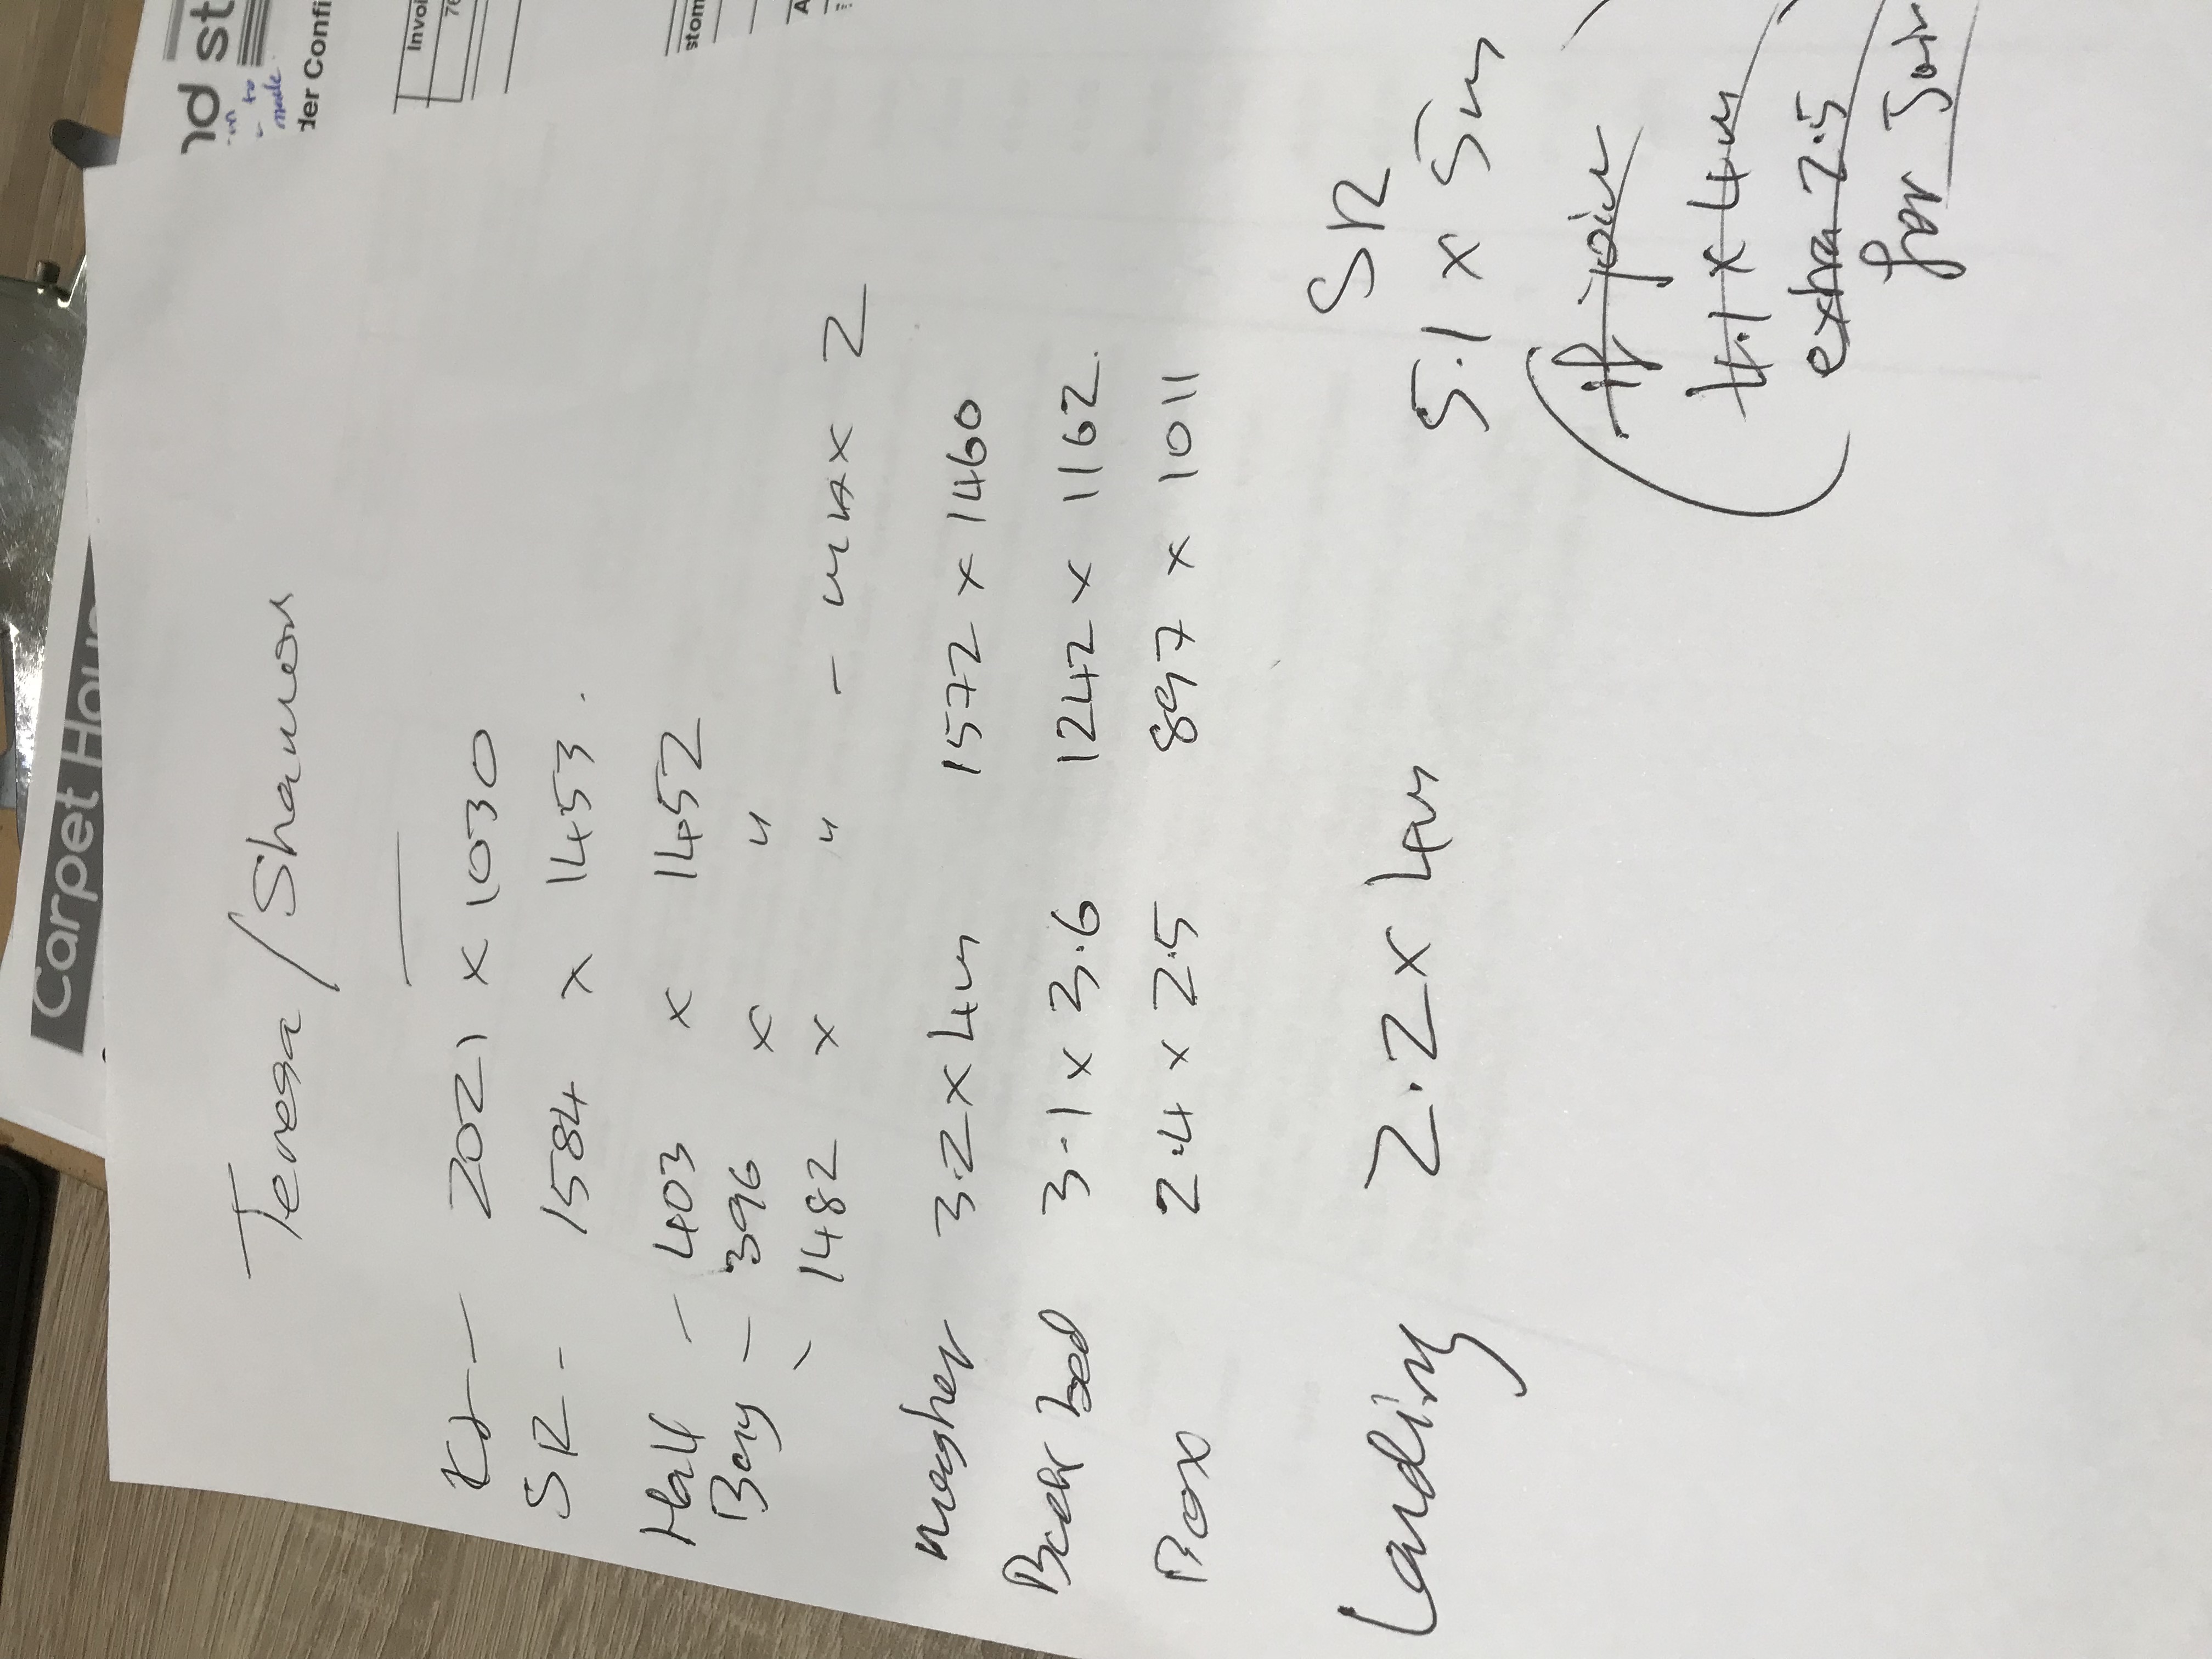 Carpet Hou
nd st
der Confi
Invoi
76
stom
Teresa / Shannon
Kt - 2021 x 1030
SR - 1584 x 1453.
Half - 403 x 1452
Bay - 396 x "
- 1482 x " - max 2
Master 3.2 x 4m 1572 x 1460
Back bed 3.1 x 3.6 1242 x 1162
Box 2.4 x 2.5 897 x 1011
SR
Landing 2.2 x 4m 5.1 x 5m
(If join
4.1 x 4m
extra 2.5
for Join